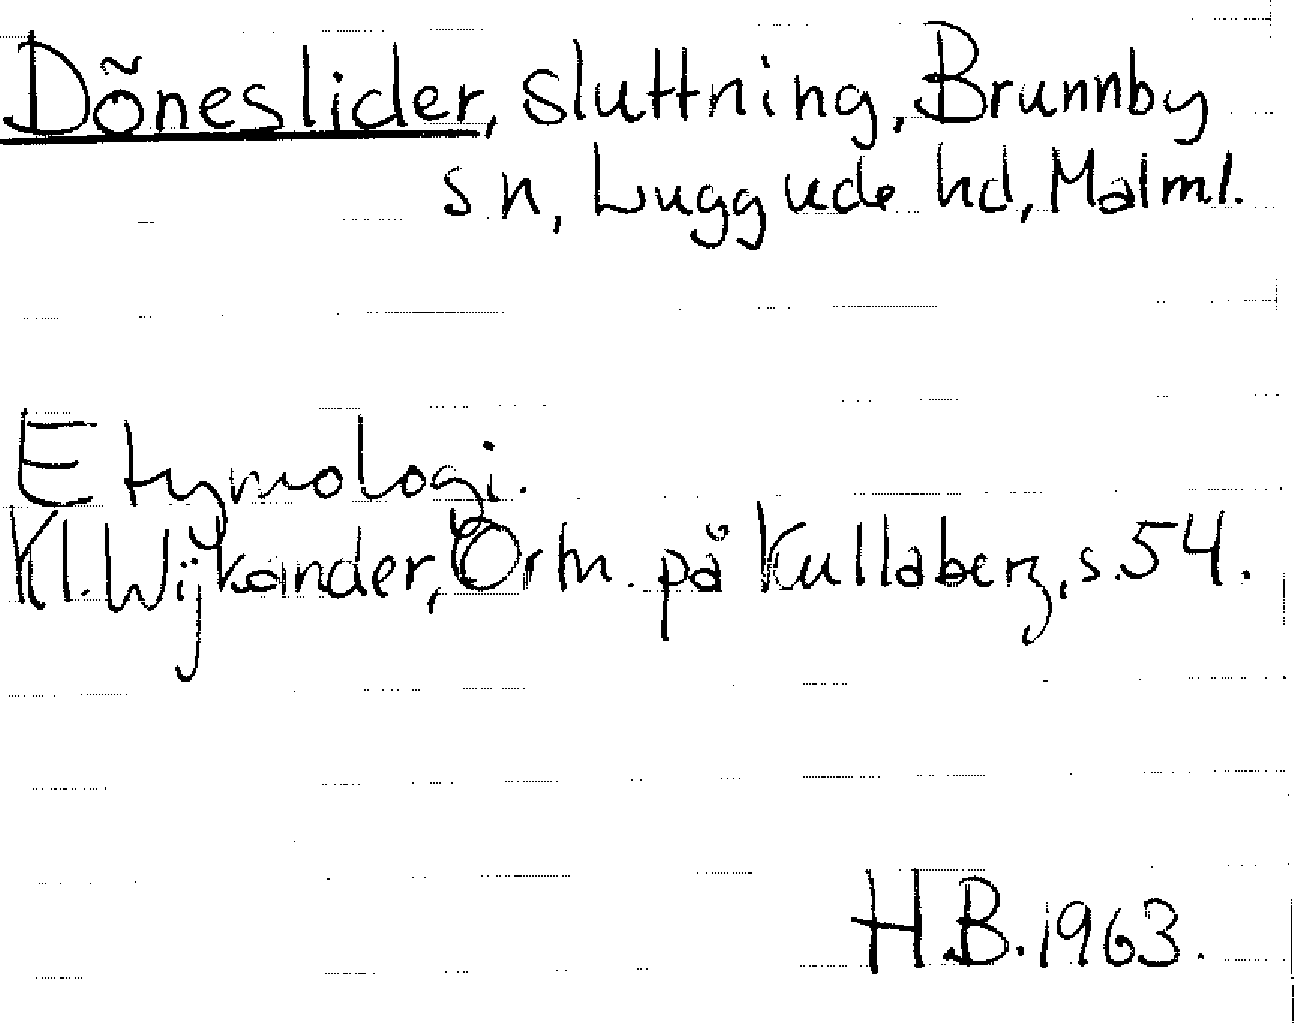 Döneslider, sluttning, Brunnby
sn, Luggude hd, Malml.
Etymologi.
Kl. Wijkander, Ortn. på Kullaberg, s. 54.
H.B. 1963.